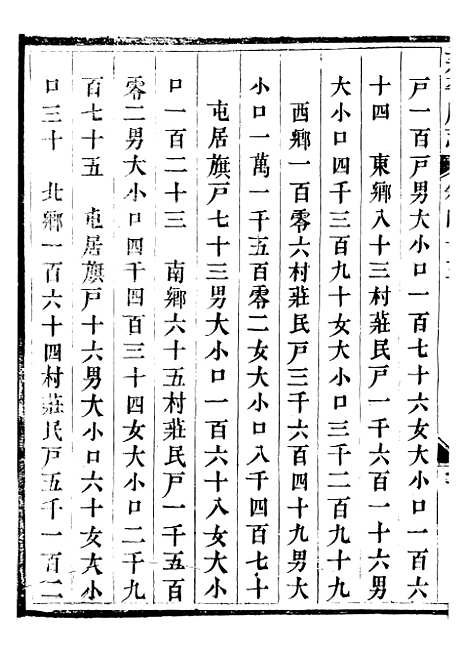 戸一百戸男大小口一百七十六女大小口一百六
十四　東鄉八十三村莊民戸一千六百一十六男
大小口四千三百九十女大小口三千二百九十九
西鄉一百零六村莊民戸三千六百四十九男大
小口一萬一千五百零二女大小口八千四百七十
屯居旗戸七十三男大小口一百六十八女大小
口一百二十三　南鄉六十五村莊民戸一千五百
零二男大小口四千四百三十四女大小口二千九
百七十五　屯居旗戸十六男大小口六十女大小
口三十　北鄉一百六十四村莊民戸五千一百二